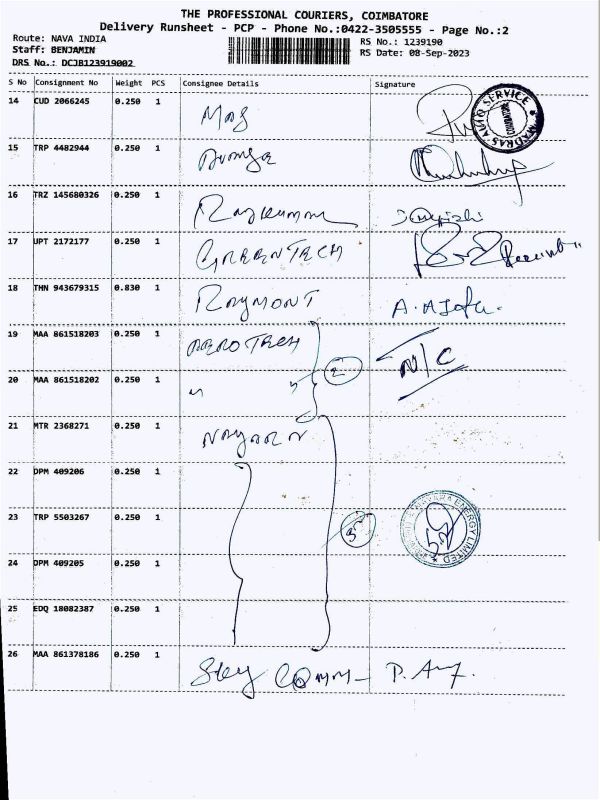 THE PROFESSIONAL COURIERS, COIMBATORE
Delivery Runsheet - PCP - Phone No.:0422-3505555 - Page No.:2
Route: NAVA INDIA
RS No.: 1239190
Staff: BENJAMIN
RS Date: 08-Sep-2023
DRS No.: DCJB123919002
S No Consignment No Weight PCS Consignee Details Signature
14 CUD 2066245 0.250 1
MADRAS AUTO SERVICE
15 TRP 4482944 0.250 1
16 TRZ 145680326 0.250 1 Rajkumar
17 UPT 2172177 0.250 1 GREENTECH
18 THN 943679315 0.830 1 RAYMONT
19 MAA 861518203 0.250 1 AEROTECH N/C
20 MAA 861518202 0.250 1 " 2
21 MTR 2368271 0.250 1
22 DPM 409206 0.250 1
23 TRP 5503267 0.250 1 5
ENERGY LIMITED
24 DPM 409205 0.250 1
25 EDQ 18082387 0.250 1
26 MAA 861378186 0.250 1 Sky COMM